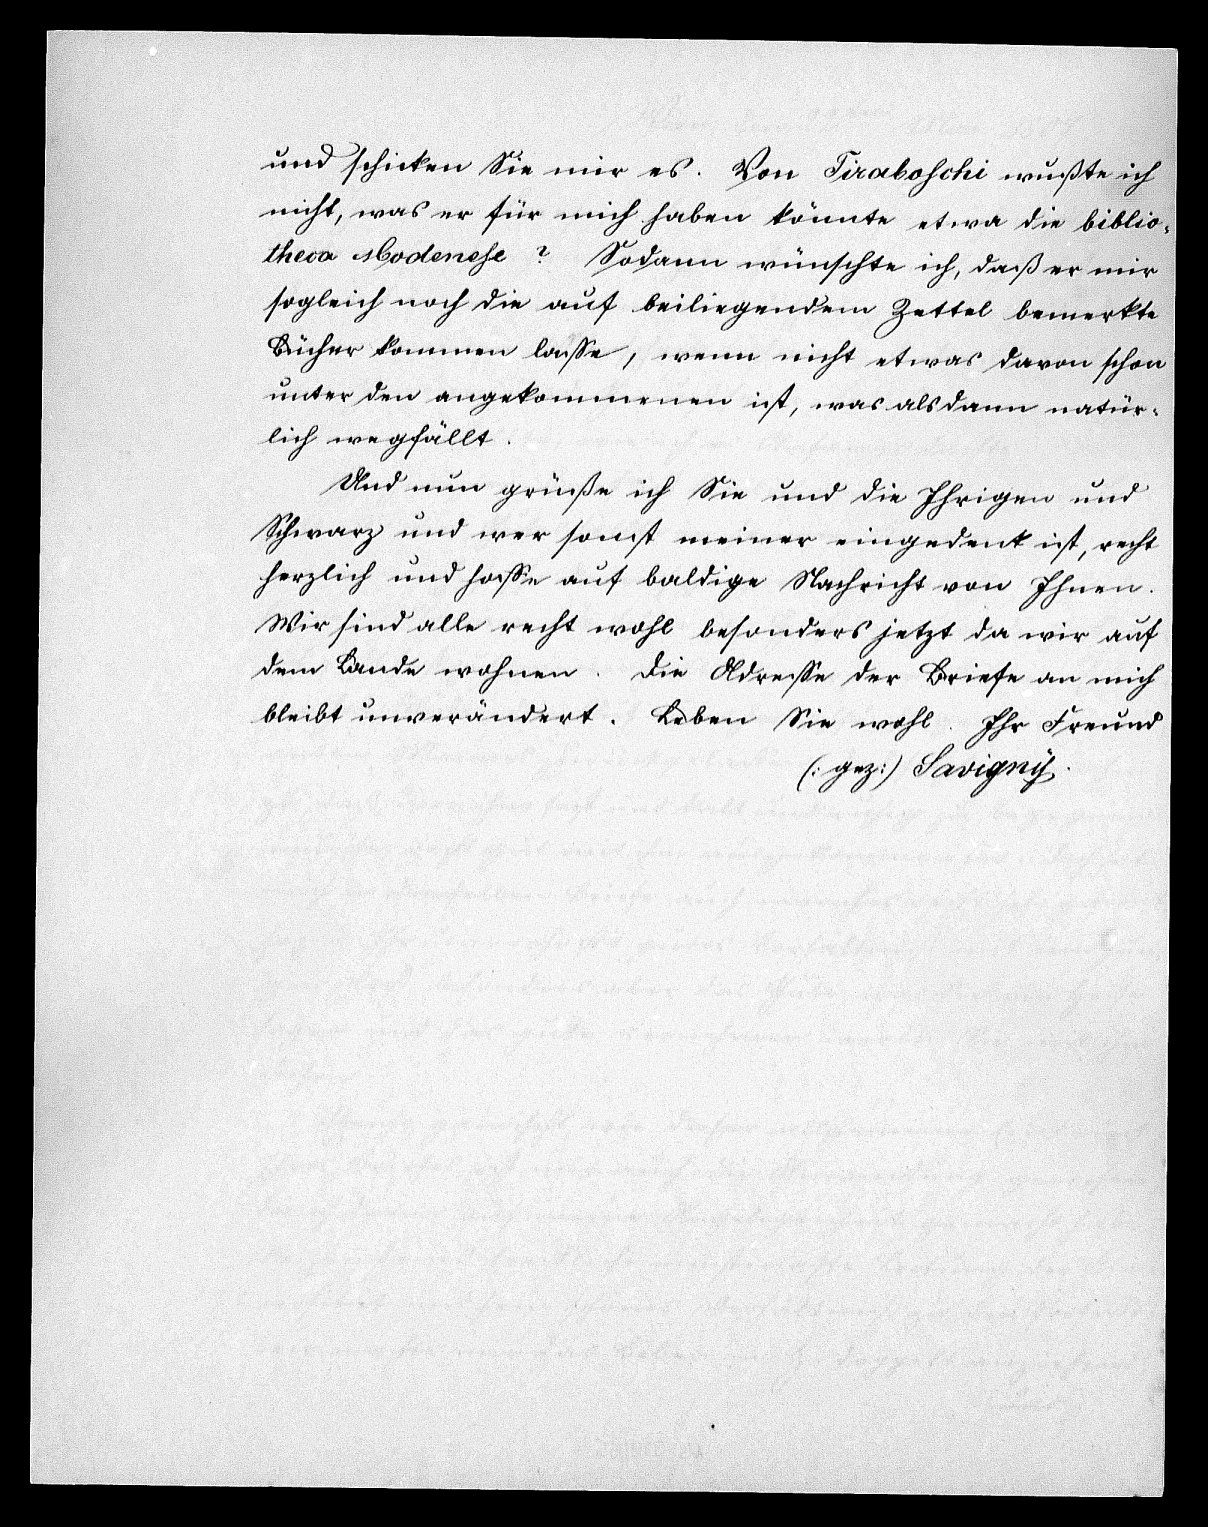 und schicken Sie mir es. Von Tiraboschi wußte ich
nicht, was er für mich haben könnte etwa die biblio-
theca Modenese? Sodann wünschte ich, daß er mir
sogleich noch die auf beiliegendem Zettel bemerkte
Bücher kommen lasse, wenn nicht etwas davon schon
unter den angekommenen ist, was alsdann natür-
lich wegfällt.
Und nun grüße ich Sie und die Ihrigen und
Schwarz und wer sonst meiner eingedenk ist, recht
herzlich und hoffe auf baldige Nachricht von Ihnen.
Wir sind alle recht wohl besonders jetzt da wir auf
dem Lande wohnen. Die Adresse der Briefe an mich
bleibt unverändert. Leben Sie wohl. Ihr Freund
(: gez:) Savigny.